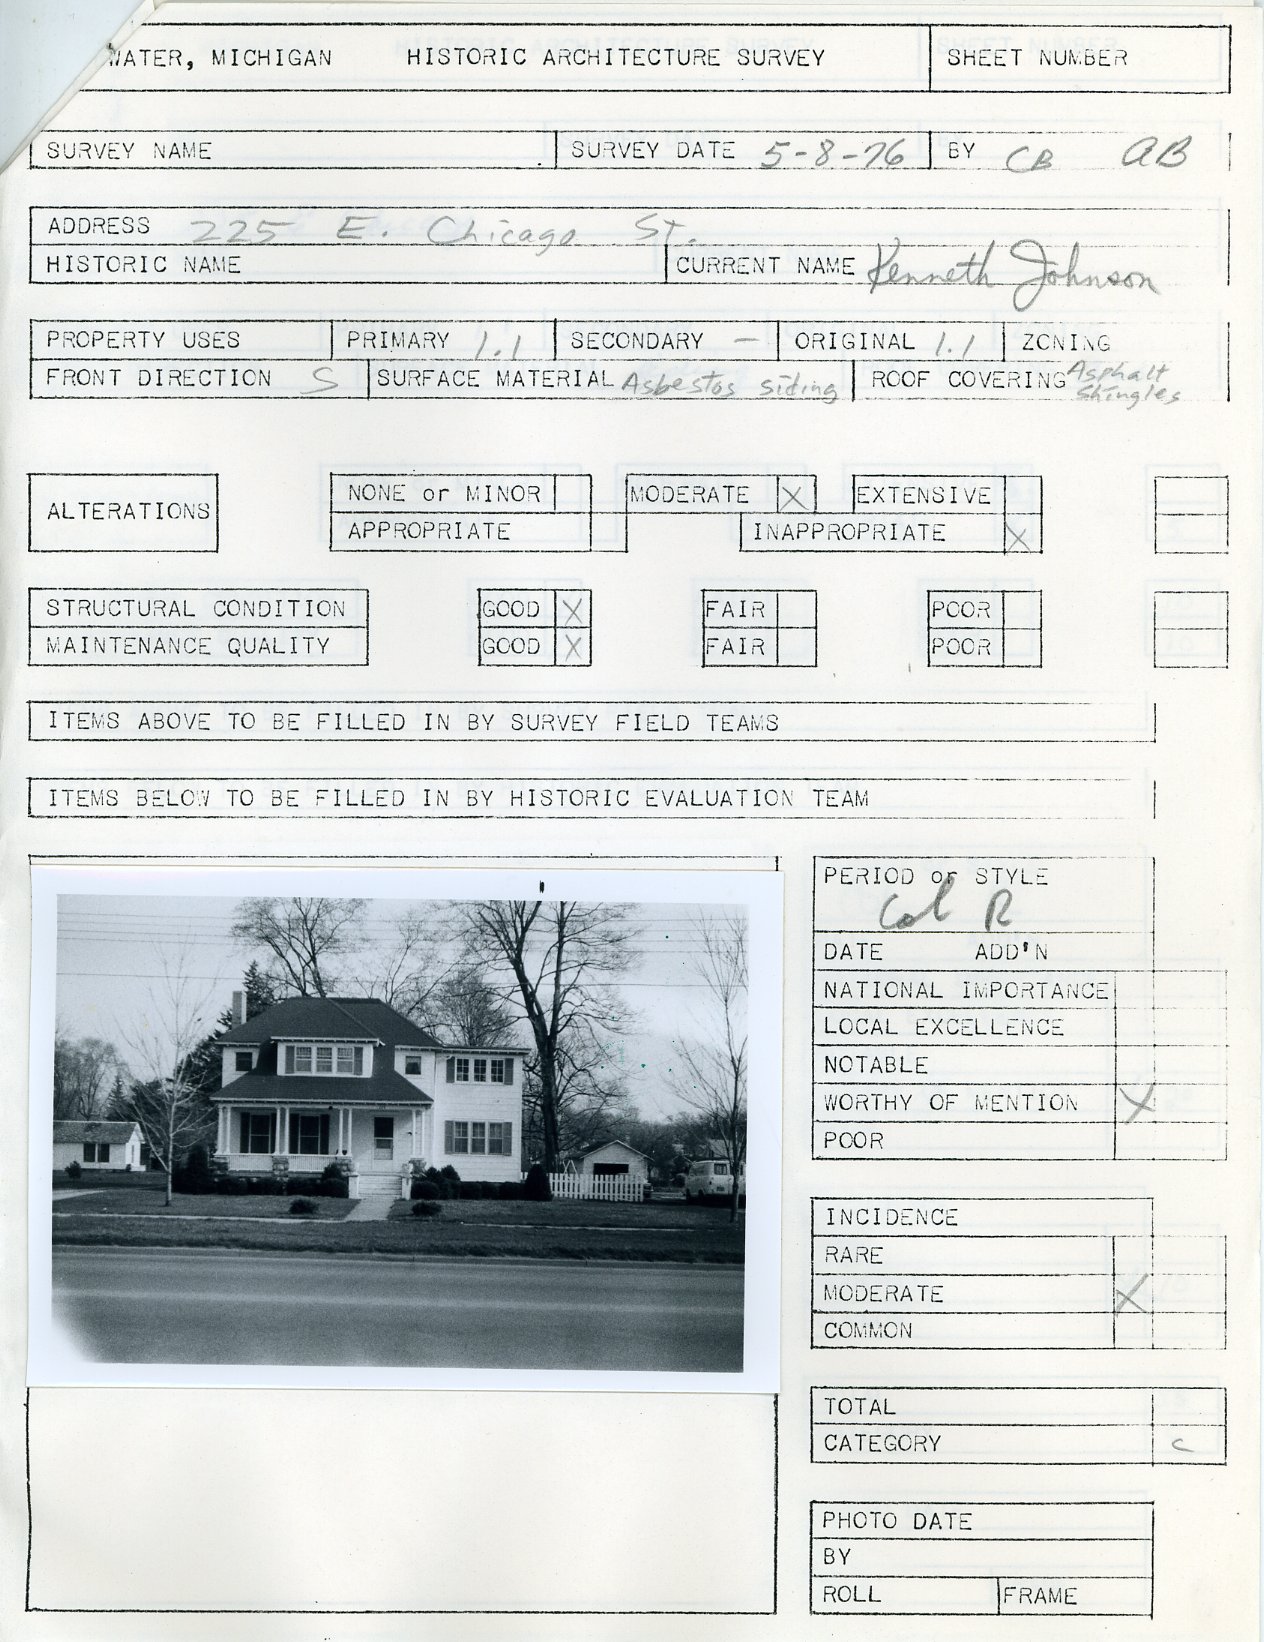 WATER, MICHIGAN HISTORIC ARCHITECTURE SURVEY SHEET NUMBER
SURVEY NAME SURVEY DATE 5-8-76 BY CB AB
ADDRESS 225 E. Chicago St.
HISTORIC NAME CURRENT NAME Kenneth Johnson
PROPERTY USES PRIMARY 1.1 SECONDARY — ORIGINAL 1.1 ZONING
FRONT DIRECTION S SURFACE MATERIAL Asbestos siding ROOF COVERING Asphalt
Shingles
ALTERATIONS
NONE or MINOR MODERATE X EXTENSIVE
APPROPRIATE INAPPROPRIATE X
STRUCTURAL CONDITION GOOD X FAIR POOR
MAINTENANCE QUALITY GOOD X FAIR POOR
ITEMS ABOVE TO BE FILLED IN BY SURVEY FIELD TEAMS
ITEMS BELOW TO BE FILLED IN BY HISTORIC EVALUATION TEAM
PERIOD or STYLE
Col R
DATE ADD'N
NATIONAL IMPORTANCE
LOCAL EXCELLENCE
NOTABLE
WORTHY OF MENTION X
POOR
INCIDENCE
RARE
MODERATE X
COMMON
TOTAL
CATEGORY C
PHOTO DATE
BY
ROLL FRAME